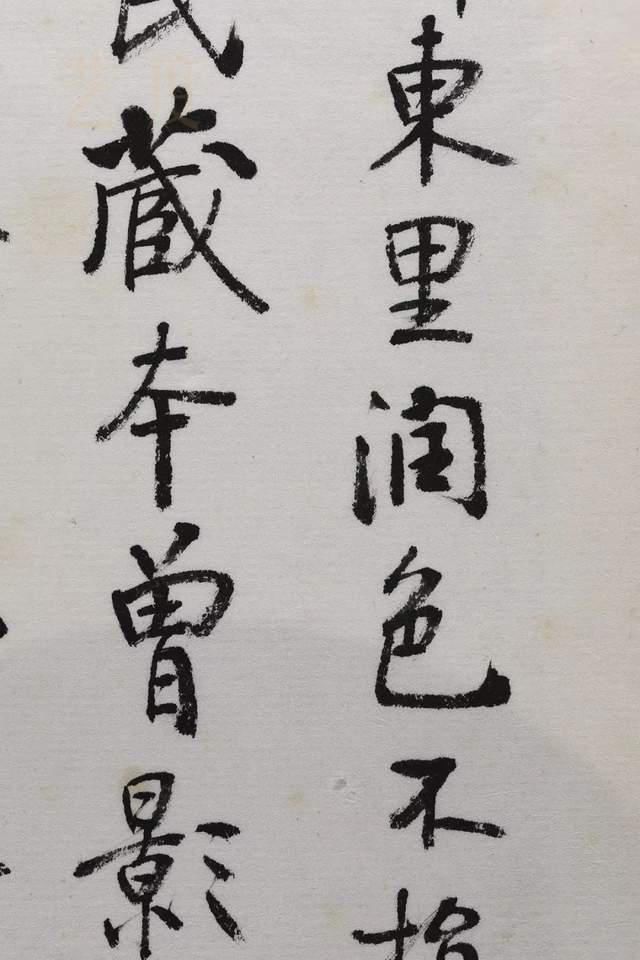 東里润色不
氏藏本曾影